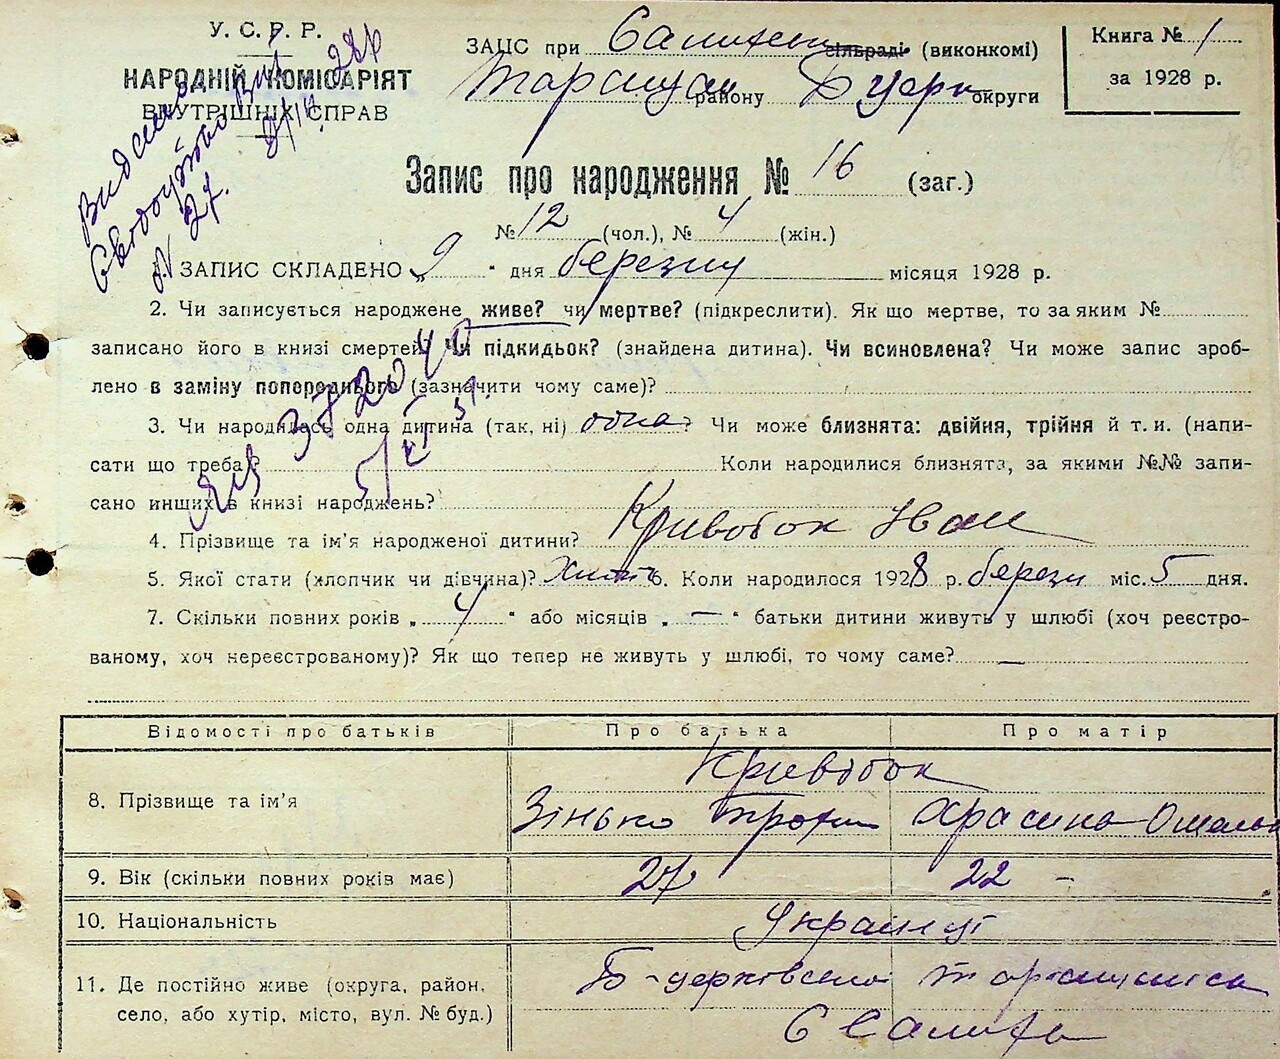 У.С.Р.Р.
НАРОДНІЙ КОМІСАРІЯТ
ВНУТРІШНІХ СПРАВ
ЗАЦС при сільраді (виконкомі)
району округи
Книга № 1
за 1928 р.
Видано
28р
№ 27.
Запис про народження № 16 (заг.)
№ 12 (чол.), № 4 (жін.)
ЗАПИС СКЛАДЕНО „ 9 " дня березня місяця 1928 р.
2. Чи записується народжене живе? чи мертве? (підкреслити). Як що мертве, то за яким №
записано його в книзі смертей? Чи підкидьок? (знайдена дитина). Чи всиновлена? Чи може запис зроб-
лено в заміну попороднього (зазначити чому саме)?
3. Чи народилась одна дитина (так, ні) одна? Чи може близнята: двійня, трійня й т. и. (напи-
сати що треба)? Коли народилися близнята, за якими №№ запи-
сано инших в книзі народжень?
4. Прізвище та ім'я народженої дитини? Кривобок Иван
5. Якої стати (хлопчик чи дівчина)? 6. Коли народилося 1928 р. березн міс. 5 дня.
7. Скільки повних років „ 4 " або місяців „ — " батьки дитини живуть у шлюбі (хоч реєстро-
ваному, хоч нереєстрованому)? Як що тепер не живуть у шлюбі, то чому саме? —
Відомості про батьків Про батька Про матір
8. Прізвище та ім'я Кривобок
Зінько Трохим
9. Вік (скільки повних років має) 27 22 —
10. Національність Українці
11. Де постійно живе (округа, район, Б-церківсько
село, або хутір, місто, вул. № буд.)